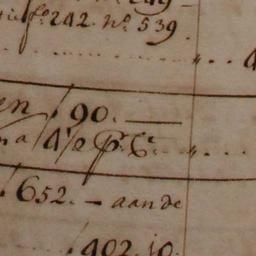 fo 242. No 539
en / 90. —
na / 4 1/2 P. Ct
652. — aan de
402. 10.